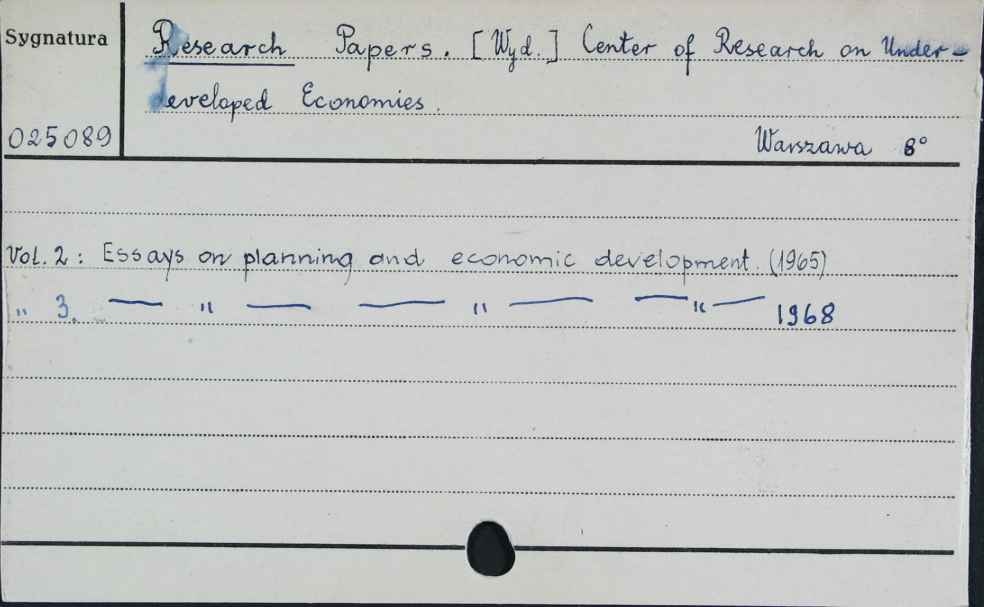 Sygnatura
Research Papers. [Wyd.] Center of Research on Under-
developed Economies.
025089
Warszawa 8°
Vol. 2 : Essays on planning and economic development. (1965)
" 3. — " — — " — — " — 1968